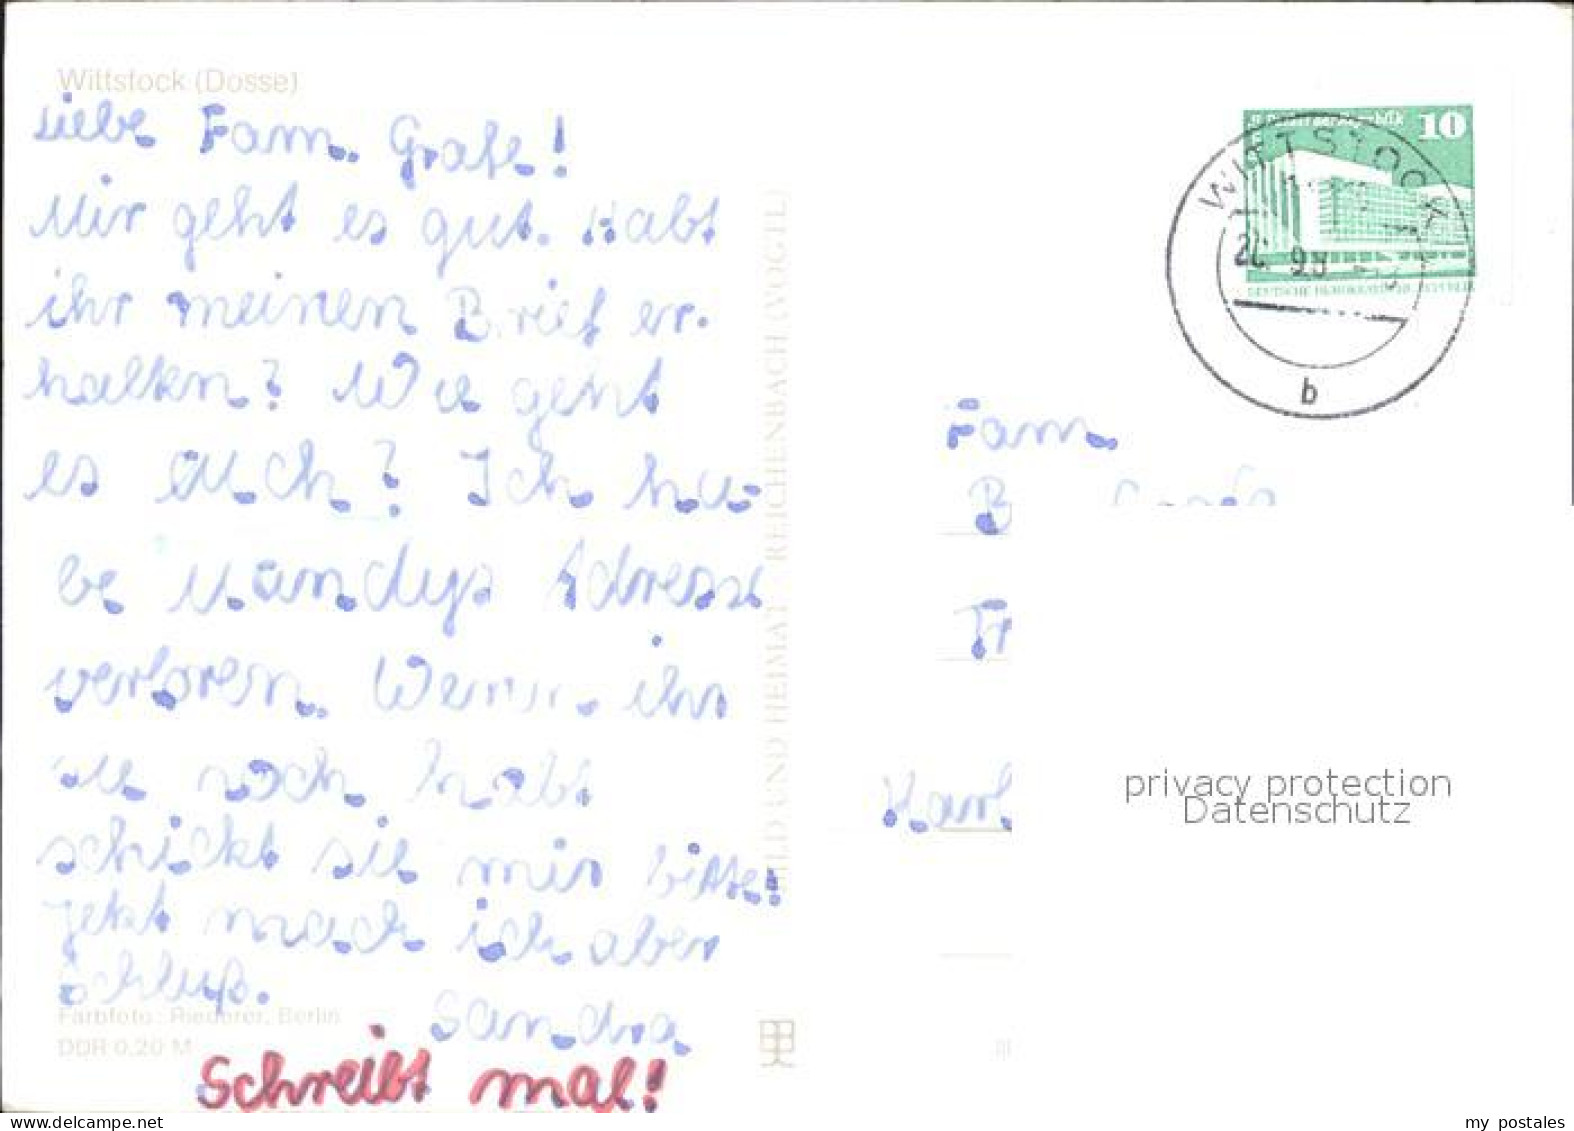 Wittstock (Dosse)
Liebe Fam. Grafe!
Mir geht es gut. Habt
ihr meinen Brief er-
halten? Wie geht
es euch? Ich ha-
be Mandys Adresse
verloren. Wenn ihr
sie noch habt
schickt sie mir bitte!
Jetzt mach ich aber
Schluß.
Sandra
Schreibt mal!
Farbfoto: Riederer, Berlin
DDR 0,20 M
BILD UND HEIMAT REICHENBACH (VOGTL)
10
WITTSTOCK
b
Fam.
Karl
privacy protection
Datenschutz
www.delcampe.net
my_postales